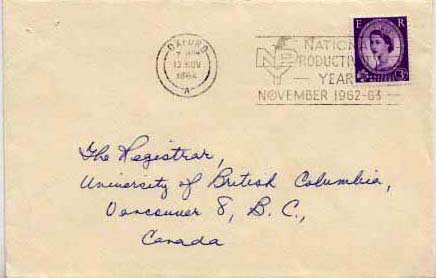 OXFORD
13 NOV
1962
A
NATIONAL
NPY PRODUCTIVITY
YEAR
NOVEMBER 1962-63
E R
3D
The Registrar,
University of British Columbia,
Vancouver 8, B.C.,
Canada